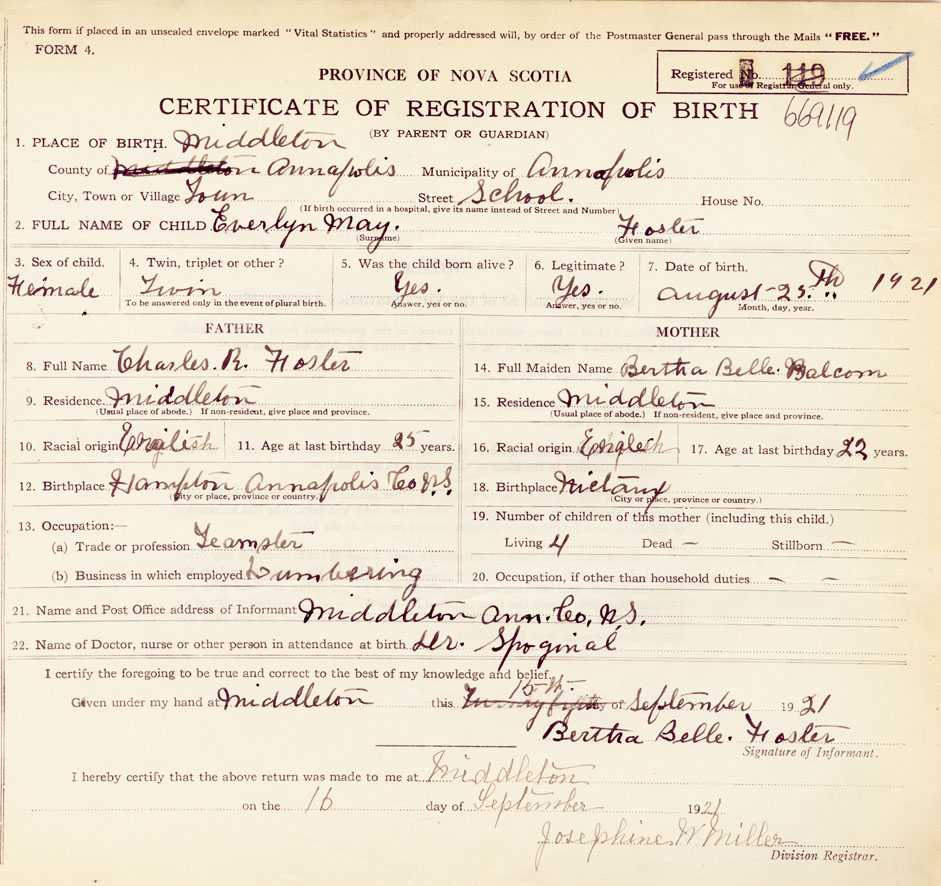 This form if placed in an unsealed envelope marked "Vital Statistics" and properly addressed will, by order of the Postmaster General pass through the Mails "FREE."
FORM 4.
PROVINCE OF NOVA SCOTIA
Registered No. 119
For use of Registrar General only.
CERTIFICATE OF REGISTRATION OF BIRTH
669119
(BY PARENT OR GUARDIAN)
1. PLACE OF BIRTH. Middleton
County of Middleton Annapolis Municipality of Annapolis
City, Town or Village Town Street School. House No.
(If birth occurred in a hospital, give its name instead of Street and Number)
2. FULL NAME OF CHILD Everlyn May. Foster
(Surname) (Given name)
3. Sex of child. 4. Twin, triplet or other? 5. Was the child born alive? 6. Legitimate? 7. Date of birth.
Female Twin Yes. Yes. August-25.Th 1921
To be answered only in the event of plural birth. Answer, yes or no. Answer, yes or no. Month, day, year.
FATHER MOTHER
8. Full Name Charles. R. Foster
14. Full Maiden Name Bertha Belle. Balcom
9. Residence Middleton
15. Residence Middleton
(Usual place of abode.) If non-resident, give place and province.
(Usual place of abode.) If non-resident, give place and province.
10. Racial origin English 11. Age at last birthday 25 years.
16. Racial origin English 17. Age at last birthday 22 years.
12. Birthplace Hampton Annapolis Co N.S.
(City or place, province or country.)
18. Birthplace Nictaux
(City or place, province or country.)
13. Occupation:—
(a) Trade or profession Teamster
(b) Business in which employed Lumbering
19. Number of children of this mother (including this child.)
Living 4 Dead — Stillborn —
20. Occupation, if other than household duties — —
21. Name and Post Office address of Informant Middleton Ann. Co, N.S.
22. Name of Doctor, nurse or other person in attendance at birth Dr. Spoginal
I certify the foregoing to be true and correct to the best of my knowledge and belief.
15th.
Given under my hand at Middleton this day of September 1921
Bertha Belle. Foster
Signature of Informant.
I hereby certify that the above return was made to me at Middleton
on the 16 day of September 1921
Josephine W Miller
Division Registrar.